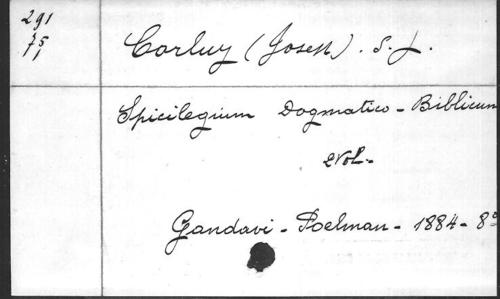 291
75
1
Corluy (Joseh). S. J.
Spicilegium Dogmatico - Biblicum
2 Vol. -
Gandavi - Poelman - 1884 - 8°